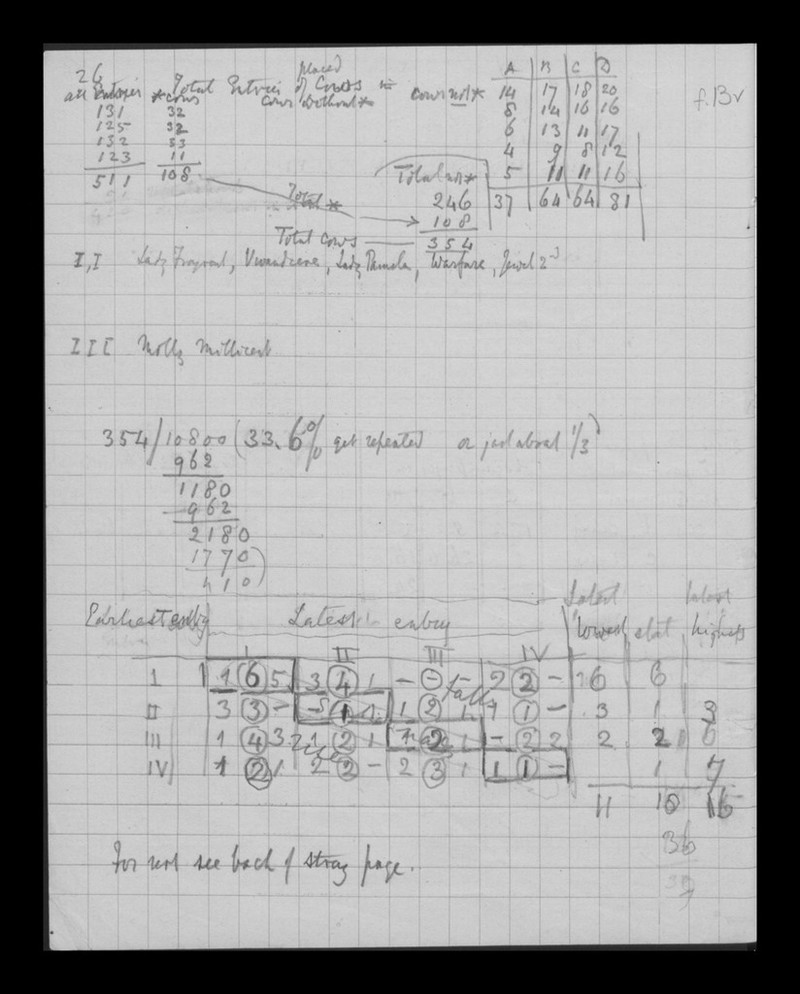 26
all Entries *cows Total Entries placed of Cows = cows not * A B C D
Cows without *
131 32 14 17 18 20
125 32 8 14 16 16
132 33 6 13 11 17
123 11 4 9 8 12
511 108 Total not * 5 11 11 16
Total * 246 37 64 64 81
108
Total cows 354
f. Bv
I, I Lady Fragrant, Vivandiere, Lady Pamela, Warfare, Jewel 2nd
III Molly Millicent
354/10800(33.6% get repeated or just about 1/3
962
1180
962
2180
1770)
410
Earliest entry Latest entry Latest lowest stat highest
I II III IV
I 1 6 5 3 4 1 - - - 2 2 - 6 6
II 3 3 - - 1 1 1 2 1 1 - 3 1 3
III 1 4 3 1 2 1 1 2 1 - 2 2 2 2 6
IV 1 2 1 2 2 - 2 3 1 1 1 - 1 7
11 10 16
36
For not see back of stray page.